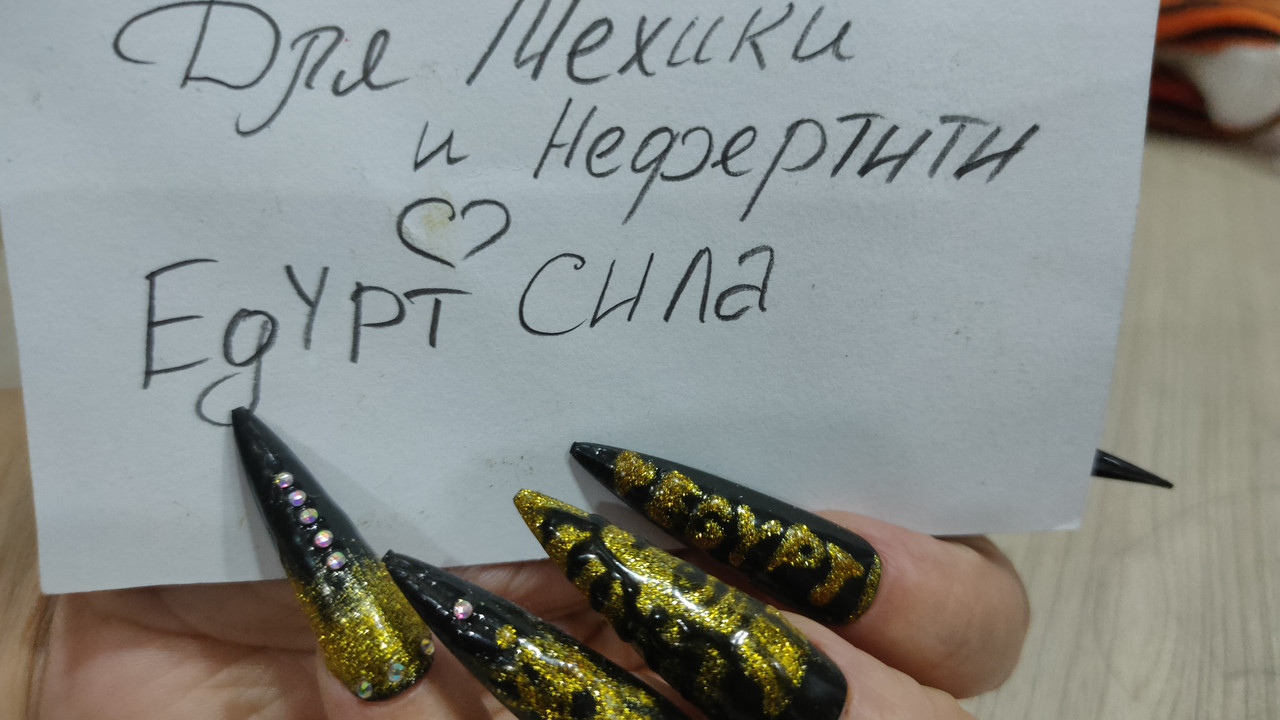 Для Мехики
и Нефертити
Egypt сила
EGYPT